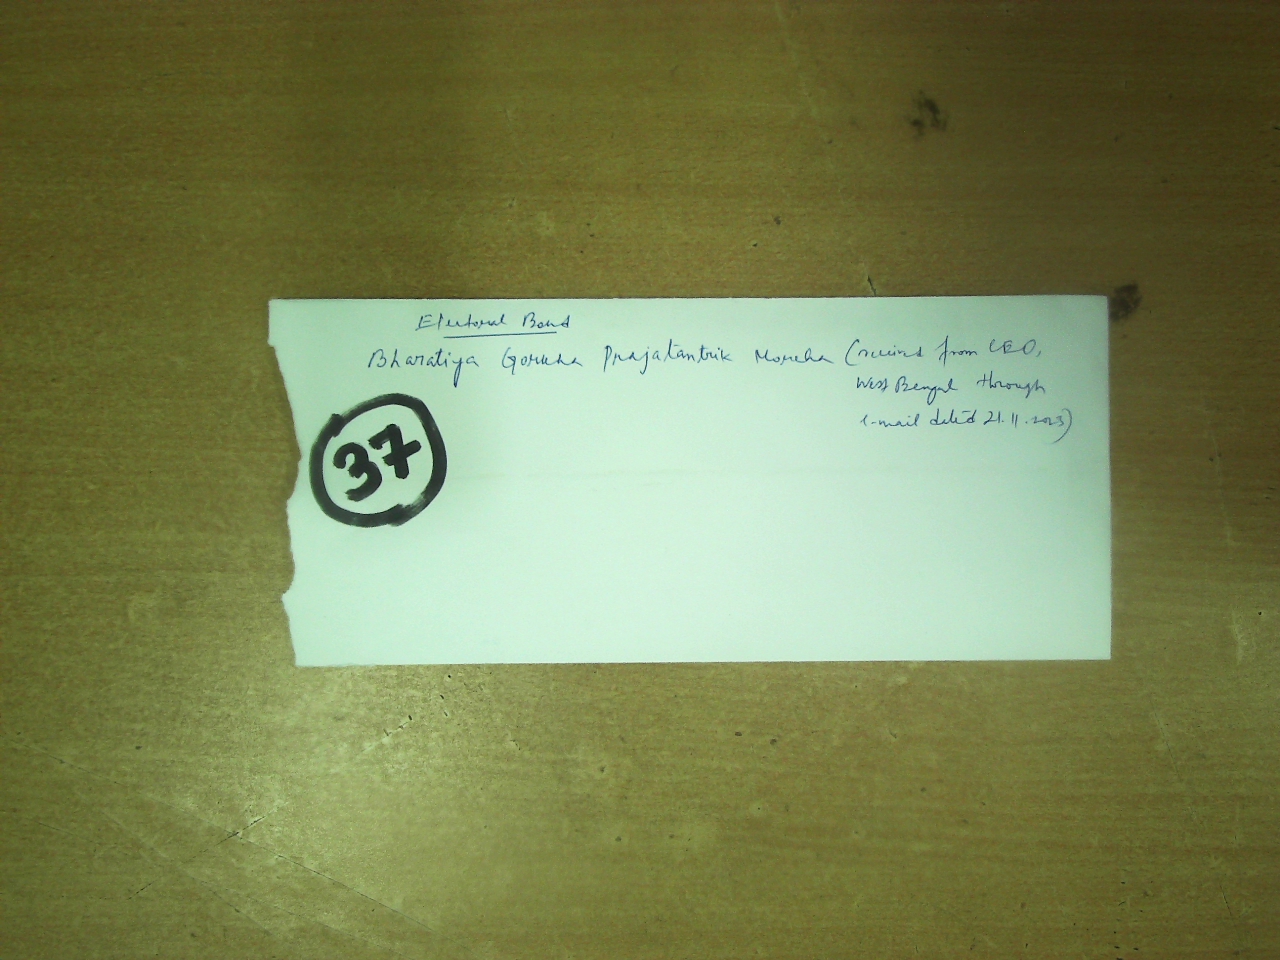 Electoral Bond
Bharatiya Gorkha Prajatantrik Morcha (received from CEO,
West Bengal through
e-mail dated 21.11.2023)
37